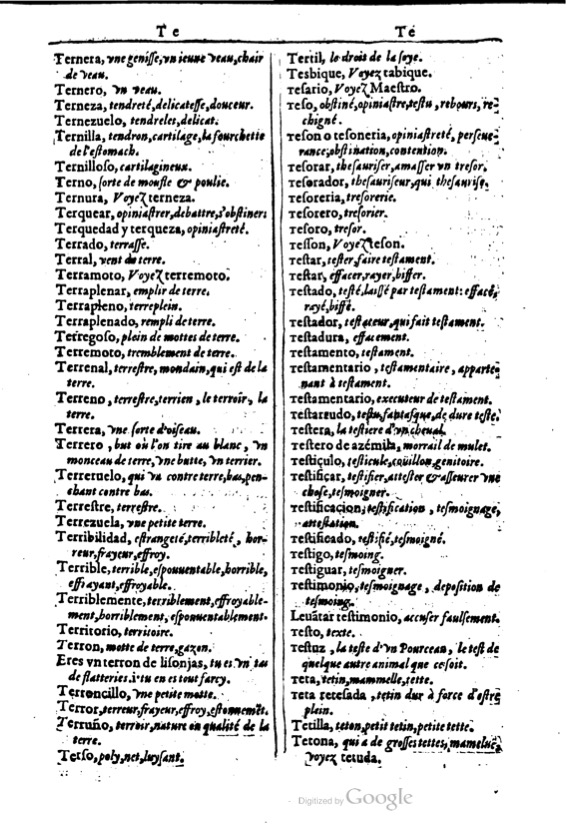 Te
Ternera, vne genisse, vn ieune veau, chair
de veau.
Ternero, vn veau.
Terneza, tendreté, delicatesse, douceur.
Ternezuelo, tendrelet, delicat.
Ternilla, tendron, cartilage, la fourchette
de l'estomach.
Ternilloso, cartilagineux.
Terno, sorte de moufle & poulie.
Ternura, Voyez terneza.
Terquear, opiniastrer, debattre, s'obstiner.
Terquedad y terqueza, opiniastreté.
Terrado, terrasse.
Terral, vent de terre.
Terramoto, Voyez terremoto.
Terraplenar, emplir de terre.
Terrapleno, terreplein.
Terraplenado, rempli de terre.
Terregoso, plein de mottes de terre.
Terremoto, tremblement de terre.
Terrenal, terrestre, mondain, qui est de la
terre.
Terreno, terrestre, terrien, le terroir, la
terre.
Terrera, vne sorte d'oiseau.
Terrero, but où l'on tire au blanc, vn
monceau de terre, vne butte, vn terrier.
Terreruelo, qui va contre terre, bas, pen-
chant contre bas.
Terrestre, terrestre.
Terrezuela, vne petite terre.
Terribilidad, estrangeté, terribleté, hor-
reur, frayeur, effroy.
Terrible, terrible, espouuentable, horrible,
effrayant, effroyable.
Terriblemente, terriblement, effroyable-
ment, horriblement, espouuentablement.
Territorio, territoire.
Terron, motte de terre, gazon.
Eres vn terron de lisonjas, tu es vn tas
de flatteries. i. tu en es tout farcy.
Terroncillo, vne petite motte.
Terror, terreur, frayeur, effroy, estonnemẽt.
Terruño, terroir, nature ou qualité de la
terre.
Terso, poly, net, luysant.
Te
Tertil, le drois de la soye.
Tesbique, Voyez tabique.
Tesario, Voyez Maestro.
Teso, obstiné, opiniastre, testu, rebours, re-
chigné.
Teson o tesoneria, opiniastreté, perseue-
rance, obstination, contention.
Tesorar, thesauriser, amasser vn tresor.
Tesorador, thesauriseur, qui thesaurise.
Tesoreria, tresorerie.
Tesorero, tresorier.
Tesoro, tresor.
Tesson, Voyez teson.
Testar, tester, faire testament.
Testar, effacer, rayer, biffer.
Testado, testé, laissé par testament: effacé,
rayé, biffé.
Testador, testateur, qui fait testament.
Testadura, effacement.
Testamento, testament.
Testamentario, testamentaire, apparte-
nant à testament.
Testamentario, executeur de testament.
Testarudo, testu, fantasque, de dure teste.
Testera, la testiere d'vn cheual.
Testero de azemila, morrail de mulet.
Testiculo, testicule, couillon, genitoire.
Testificar, testifier, attester & asseurer vne
chose, tesmoigner.
Testificacion, testification, tesmoignage,
attestation.
Testificado, testifié, tesmoigné.
Testigo, tesmoing.
Testiguar, tesmoigner.
Testimonio, tesmoignage, deposition de
tesmoing.
Leuãtar testimonio, accuser faulsement.
Testo, texte.
Testuz, la teste d'vn Pourceau, le test de
quelque autre animal que ce soit.
Teta, tetin, mammelle, tette.
Teta retesada, tetin dur à force d'estre
plein.
Tetilla, teton, petit tetin, petite tette.
Tetona, qui a de grosses tettes, mameluë,
voyez tetuda.
Digitized by Google